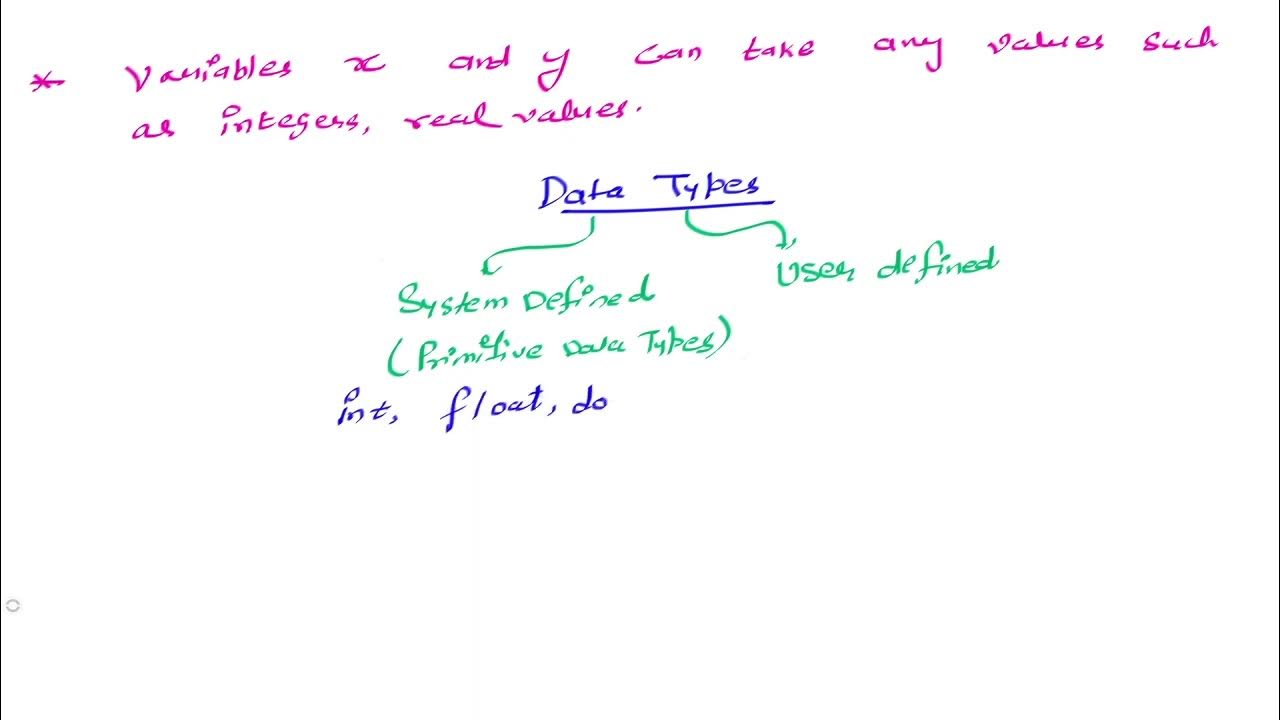 * Variables x and y can take any values such
as integers, real values.
Data Types
System Defined
User defined
(Primitive Data Types)
int, float, do